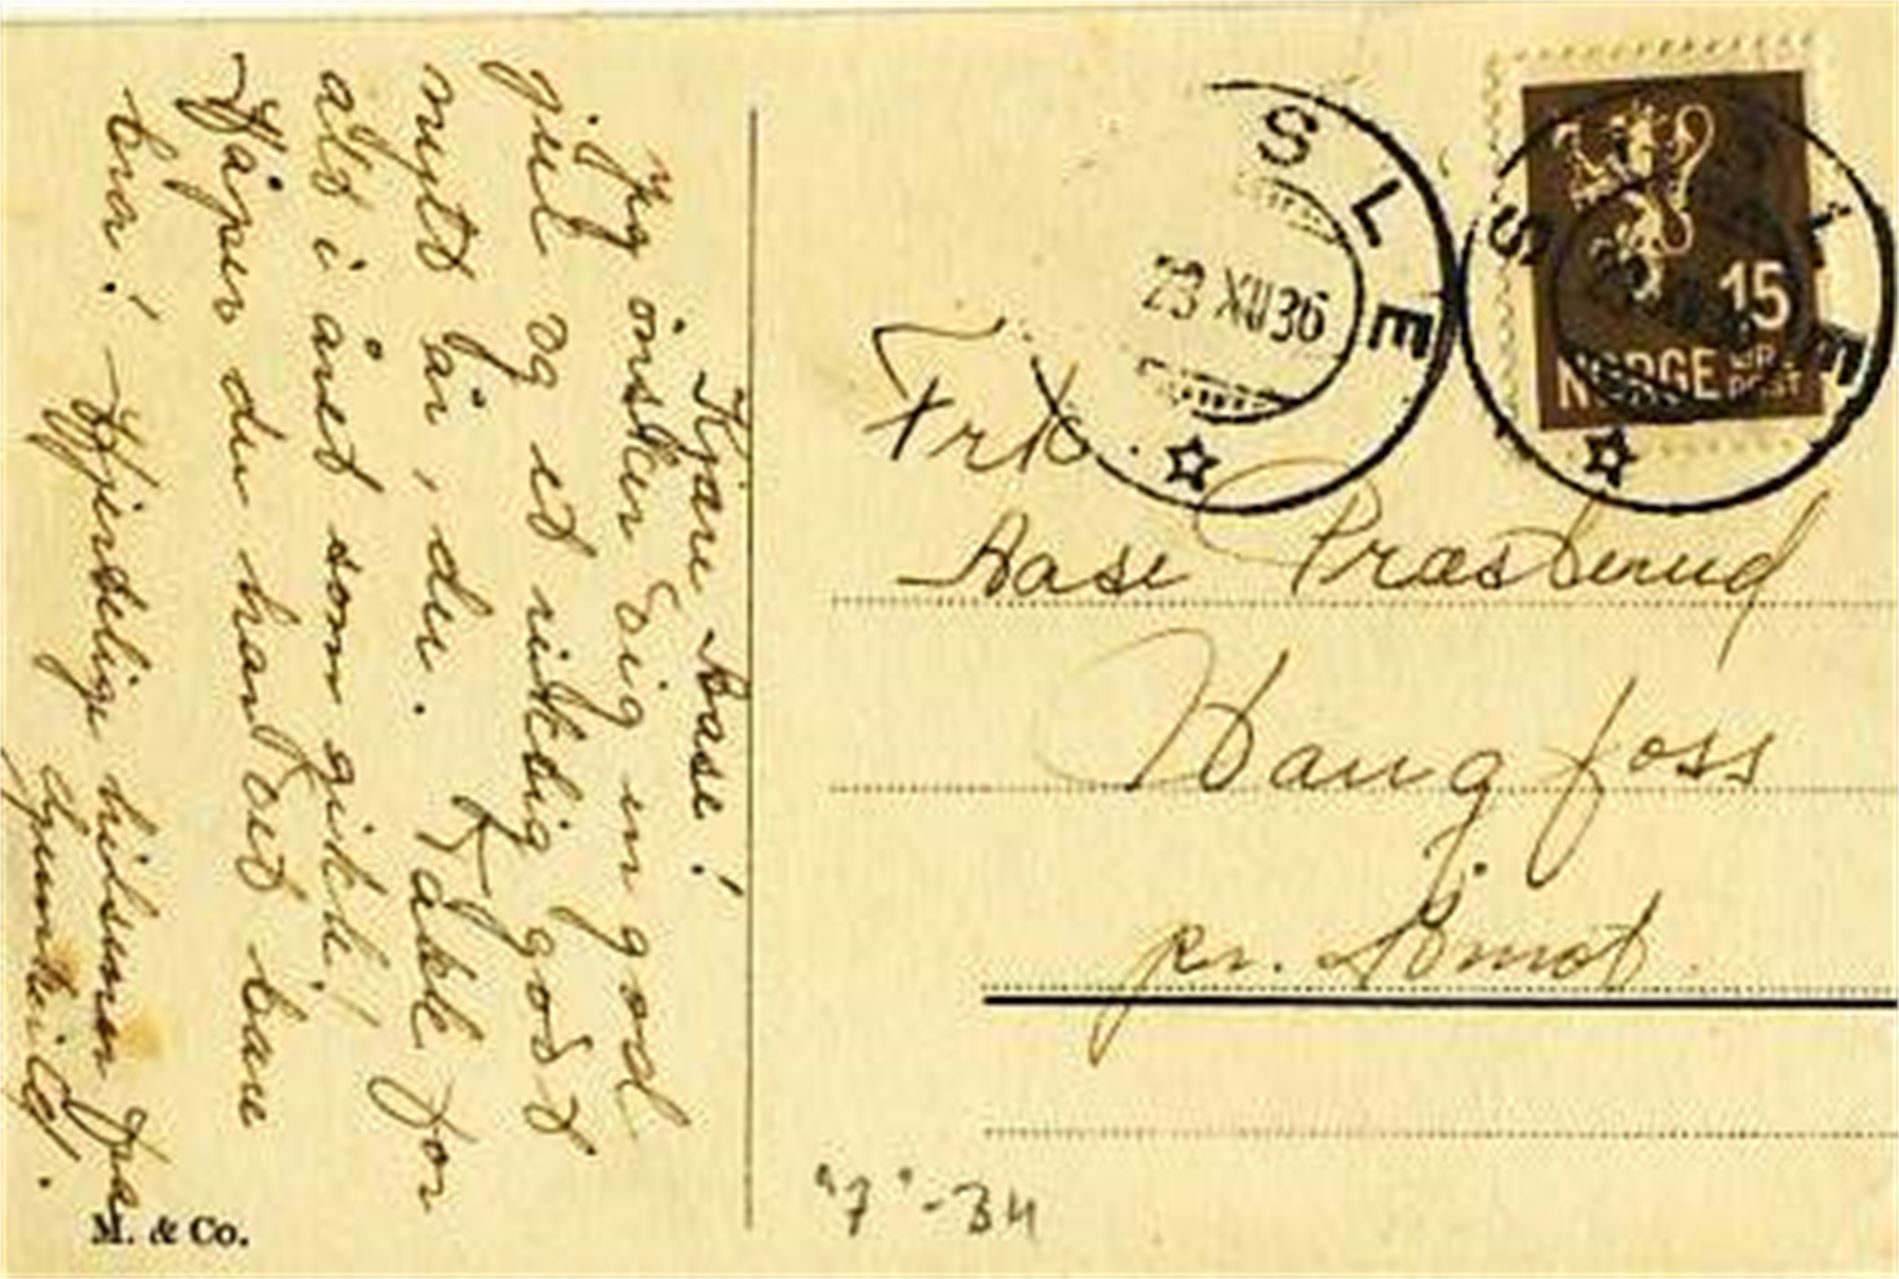 Kjære Aase!
Jeg önsker Dig en god
jul og et riktig godt
nytt år, du. Takk for
alt i året som gikk!
Håper du har det bare
bra! Hjertelige hilsener fra
Gunhild.
M. & Co.
SLE
23 XII 36
15
NORGE
POST
SLE
Frk.
Aase Præsterud
Haugfoss
pr. Åmot.
"7"-34